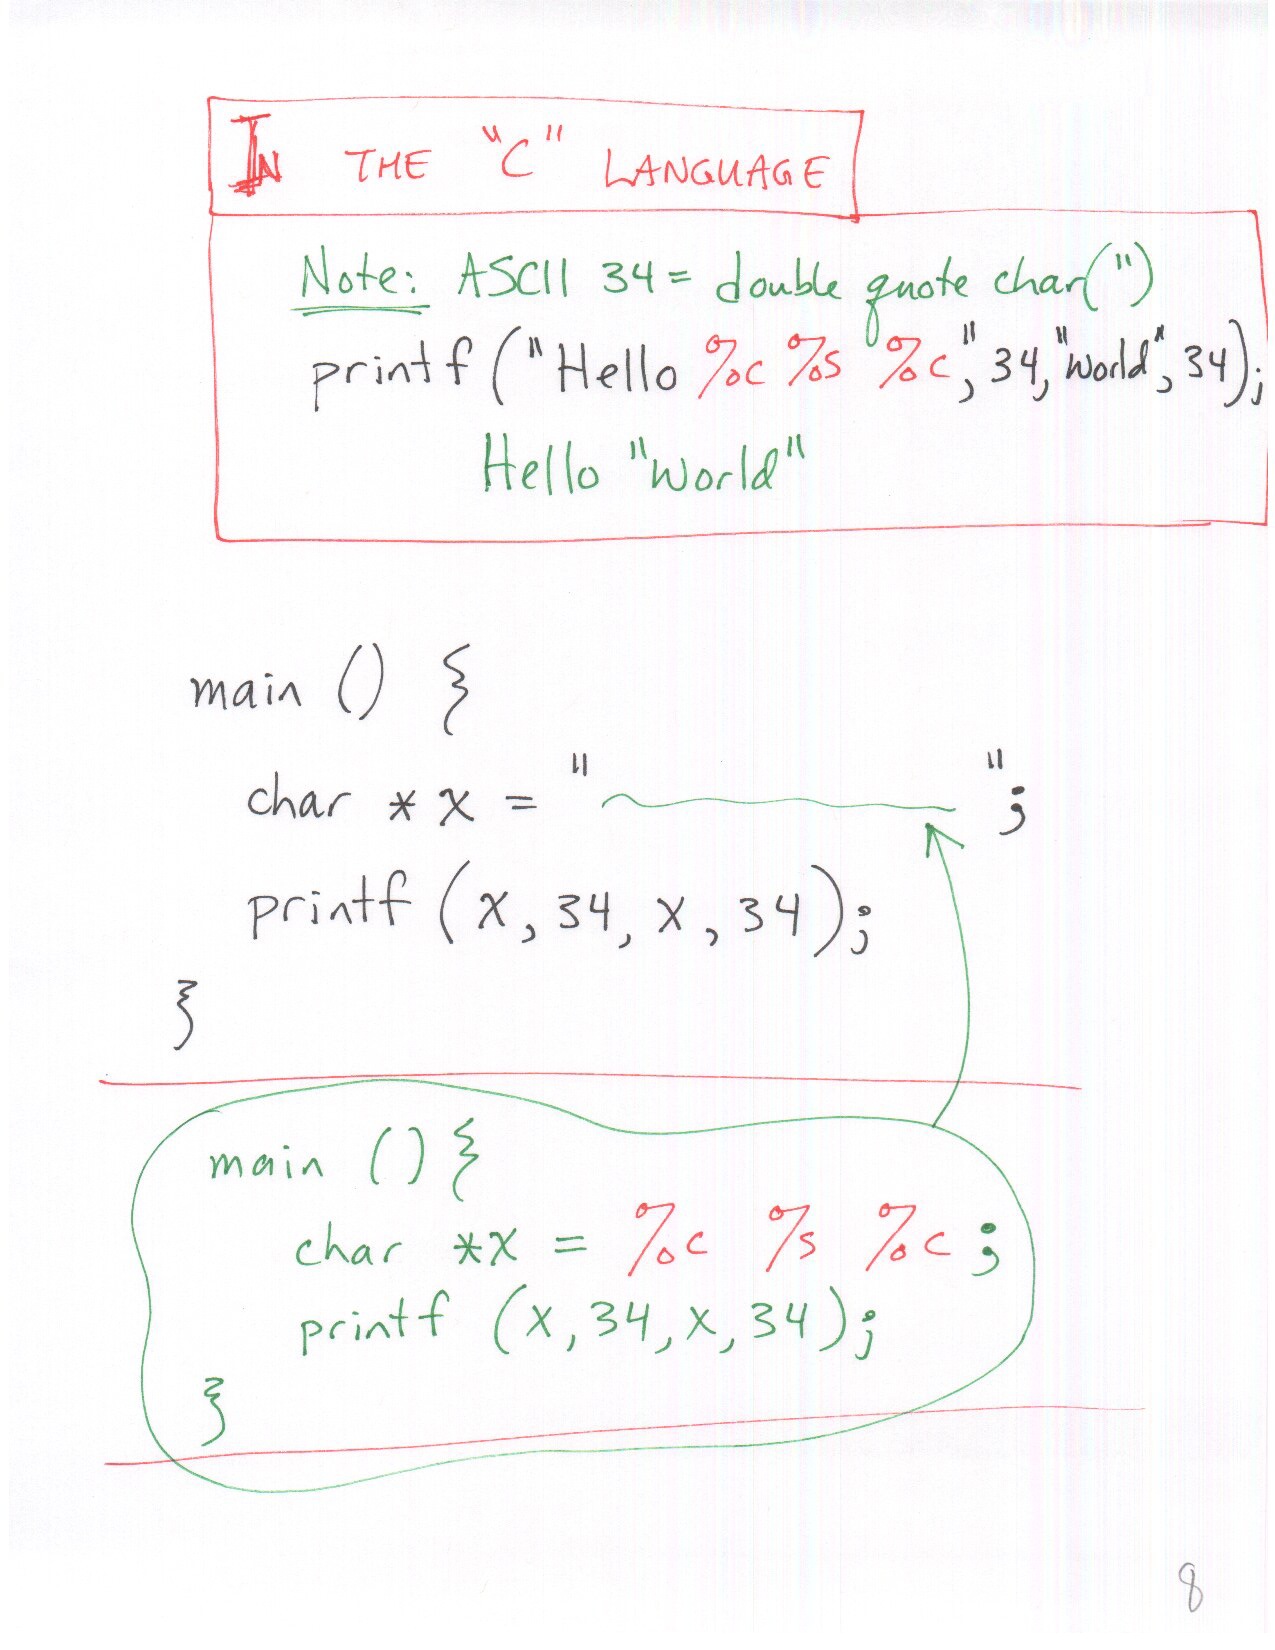 IN THE "C" LANGUAGE
Note: ASCII 34 = double quote char(")
printf ("Hello %c %s %c", 34, "World", 34);
Hello "World"
main () {
char * x = " ";
printf (x, 34, x, 34);
}
main () {
char *x = %c %s %c ;
printf (x, 34, x, 34);
}
8